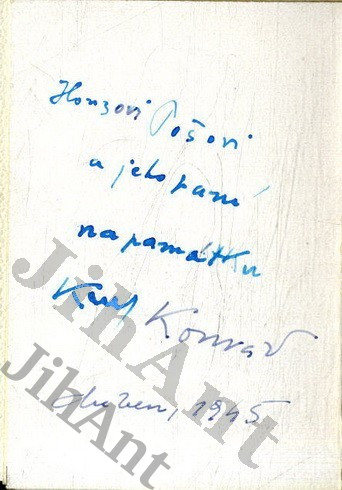 Honzovi Pošovi
a jeho paní
na památku
Karel Konrád
Duben, 1945.
JihAnt
JihAnt